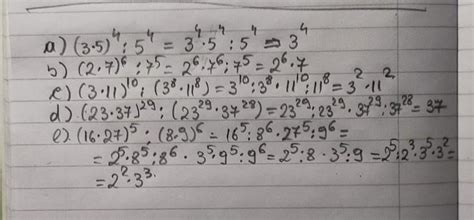 a) (3·5)⁴ : 5⁴ = 3⁴·5⁴ : 5⁴ ⇒ 3⁴
b) (2·7)⁶ : 7⁵ = 2⁶·7⁶ : 7⁵ = 2⁶·7
c) (3·11)¹⁰ : (3⁸·11⁸) = 3¹⁰ : 3⁸·11¹⁰ : 11⁸ = 3²·11²
d) (23·37)²⁹ : (23²⁹·37²⁸) = 23²⁹ : 23²⁹·37²⁹ : 37²⁸ = 37
e) (16·27)⁵ : (8·9)⁶ = 16⁵ : 8⁶·27⁵ : 9⁶ =
= 2⁵·8⁵ : 8⁶·3⁵·9⁵ : 9⁶ = 2⁵ : 8·3⁵ : 9 = 2⁵ : 2³·3⁵ : 3² =
= 2²·3³